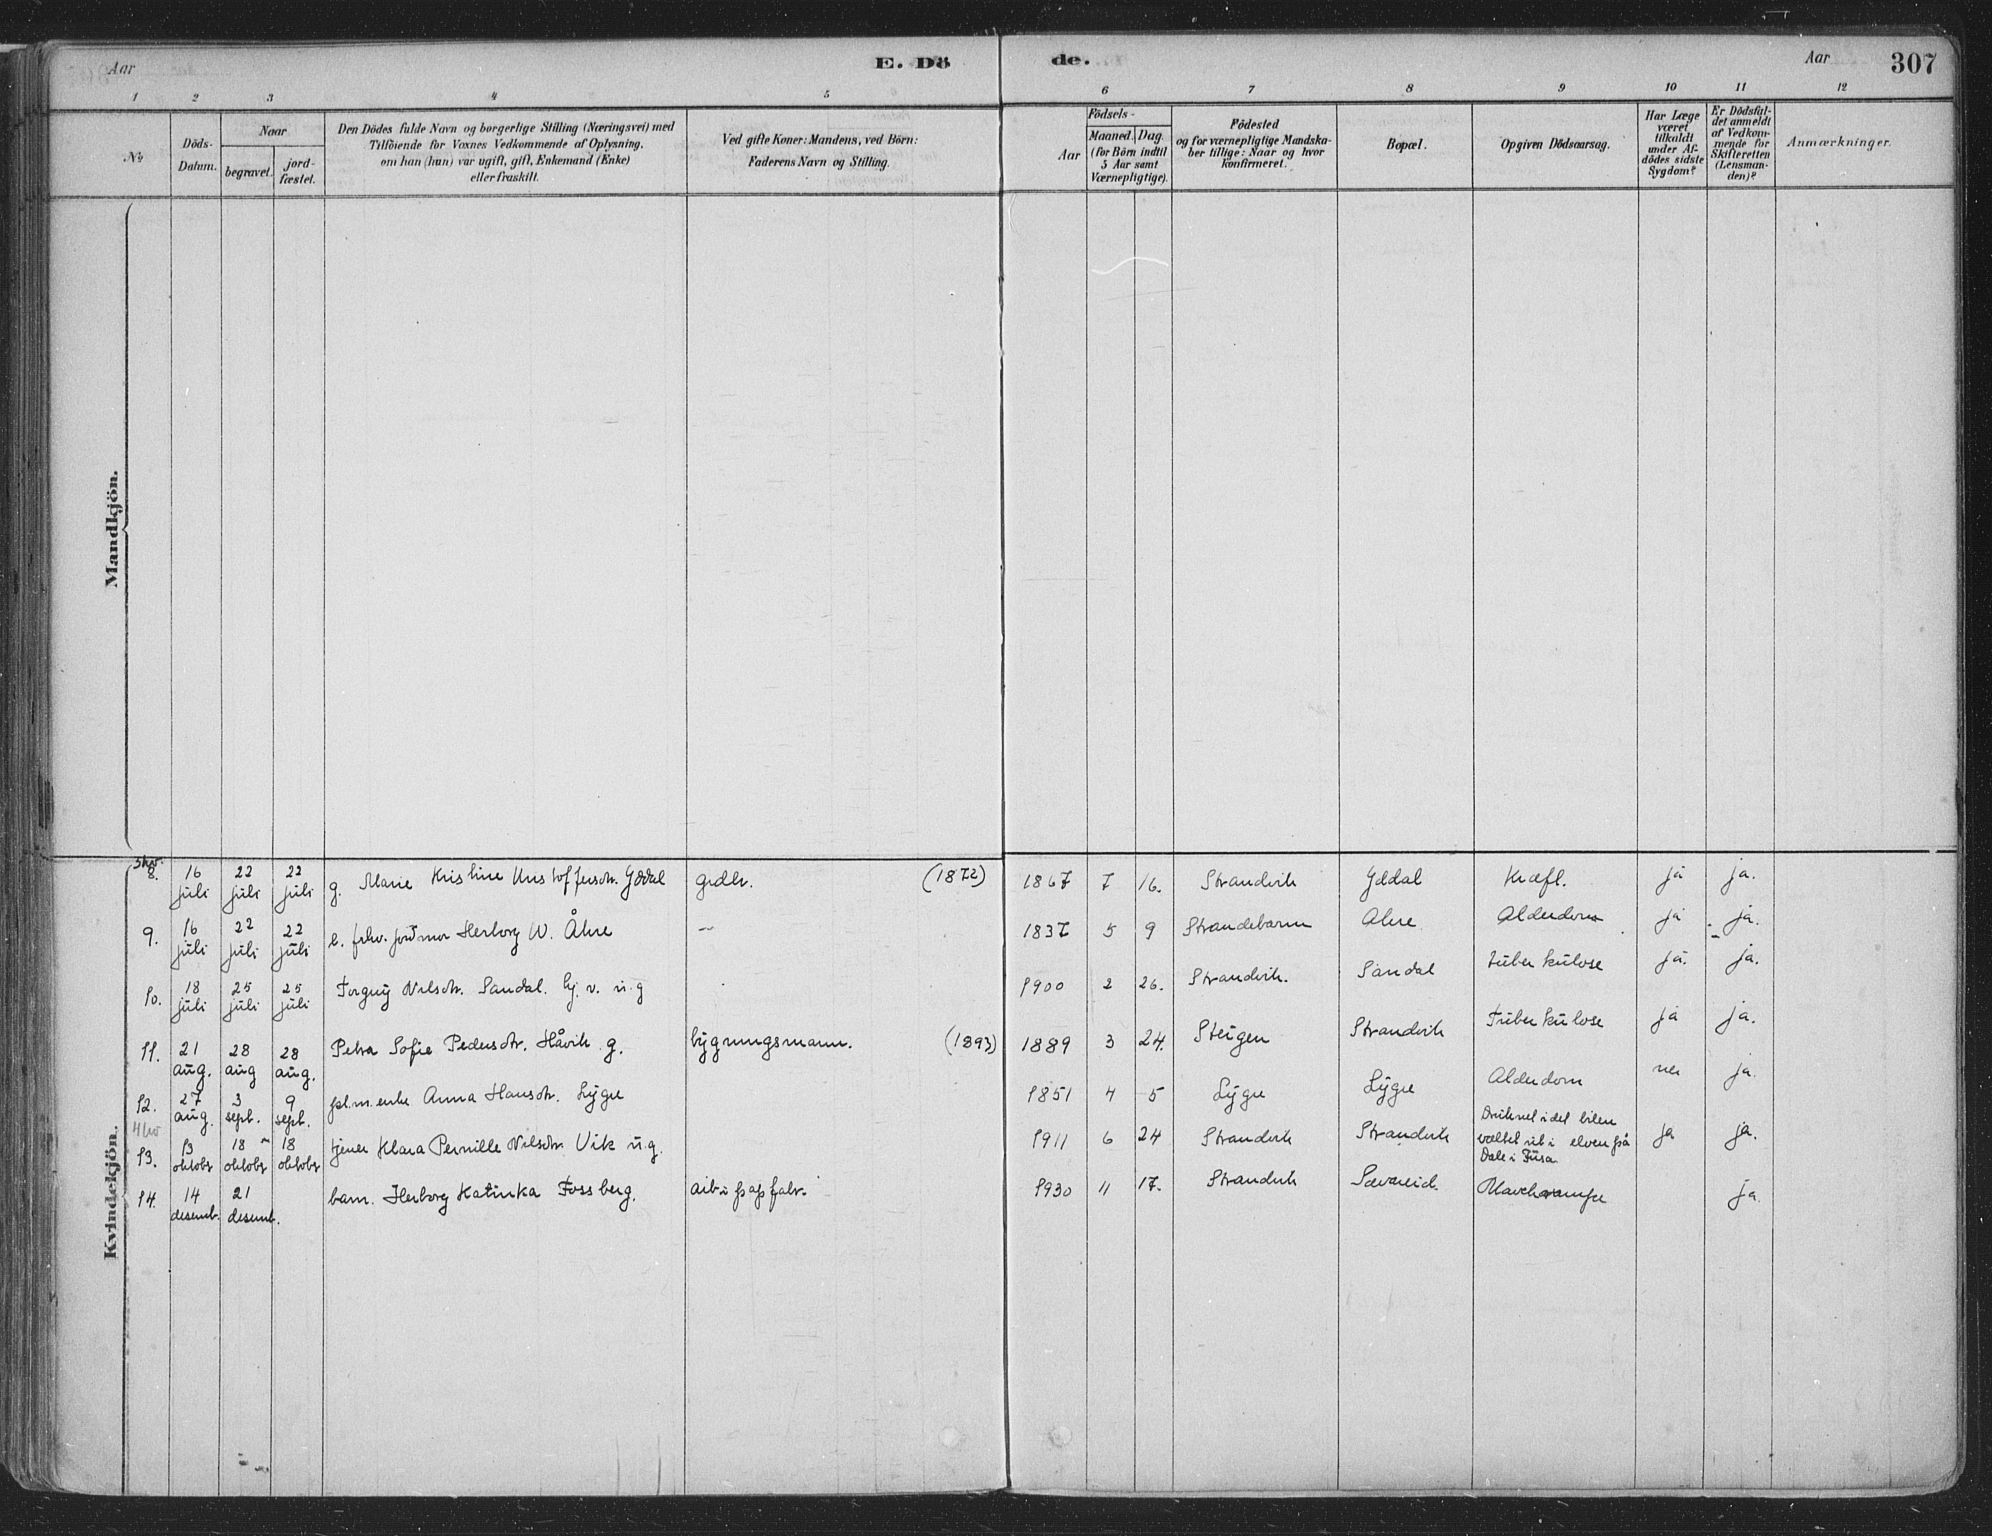 Aar
E. Dö
de.
Aar
307
1 2 3 4 5 6 7 8 9 10 11 12
No
Döds-
Datum.
Naar
begravet.
jord-
fæstet.
Den Dödes fulde Navn og borgerlige Stilling (Næringsvei) med
Tilföiende for Voxnes Vedkommende af Oplysning,
om han (hun) var ugift, gift, Enkemand (Enke)
eller fraskilt.
Ved gifte Koner: Mandens, ved Börn:
Faderens Navn og Stilling.
Födsels-
Aar
Maaned. Dag.
(for Börn indtil
5 Aar samt
Værnepligtige).
Födested
og for værnepligtige Mandska-
ber tillige: Naar og hvor
konfirmeret.
Bopæl.
Opgiven Dödsaarsag.
Har Læge
været
tilkaldt
under Af-
dödes sidste
Sygdom?
Er Dödsfal-
det anmeldt
af Vedkom-
mende for
Skifteretten
(Lensman-
den)?
Anmærkninger.
Mandkjön.
Kvindekjön.
8. 16 juli 22 juli 22 juli g. Marie Kristine Kristoffersdtr. Yddal grdbr. (1872) 1867 7 16. Strandvik Yddal Kræft. ja ja.
9. 16 juli 22 juli 22 juli e. fhv. jordmor Herborg W. Åhre — 1837 5 9 Strandebarm Ahre Alderdom ja ja.
10. 18 juli 25 juli 25 juli Torguy Nilsdtr. Sandal. u.g 1900 2 26. Strandvik. Sandal tuberkulose ja. ja.
11. 21 aug. 28 aug 28 aug. Petra Sofie Pedersdtr. Håvik g. bygningsmann. (1893) 1889 3 24. Steigen Strandvik Tuberkulose ja ja.
12. 27 aug. 3 sept. 9 sept. enke Anna Hansdtr. Lygre 1851 4 5 Lygre Lygre Alderdom nei ja.
13. 13 oktobr 18 oktobr 18 oktobr tjener Klara Pernille Nilsdtr. Vik u.g. 1911 6 24 Strandvik Strandvik Druknet idet bilen
væltet ut i elven på
Dale i Fusa ja ja.
14. 14 desemb. 21 desemb. barn. Herborg Katinka Fossberg. arb. i papfabr. 1930 11 17. Strandvik Sævareid. ja.